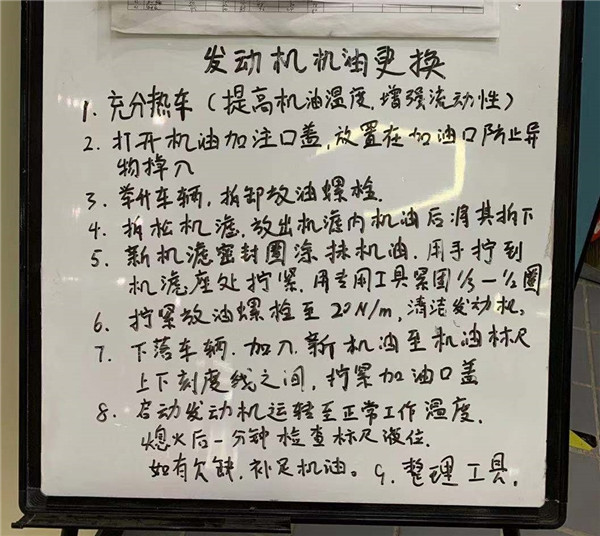 发动机机油更换
1. 充分热车（提高机油温度.增强流动性）
2. 打开机油加注口盖,放置在加油口防止异
物掉入
3. 举升车辆,拆卸放油螺栓.
4. 拆松机滤.放出机滤内机油后将其拆下
5. 新机滤密封圈涂抹机油.用手拧到
机滤座处拧紧.用专用工具紧固⅓—½圈
6. 拧紧放油螺栓至20N/m,清洁发动机。
7. 下落车辆.加入新机油至机油标尺
上下刻度线之间,拧紧加油口盖
8. 启动发动机运转至正常工作温度.
熄火后一分钟检查标尺液位.
如有欠缺.补足机油。9.整理工具.